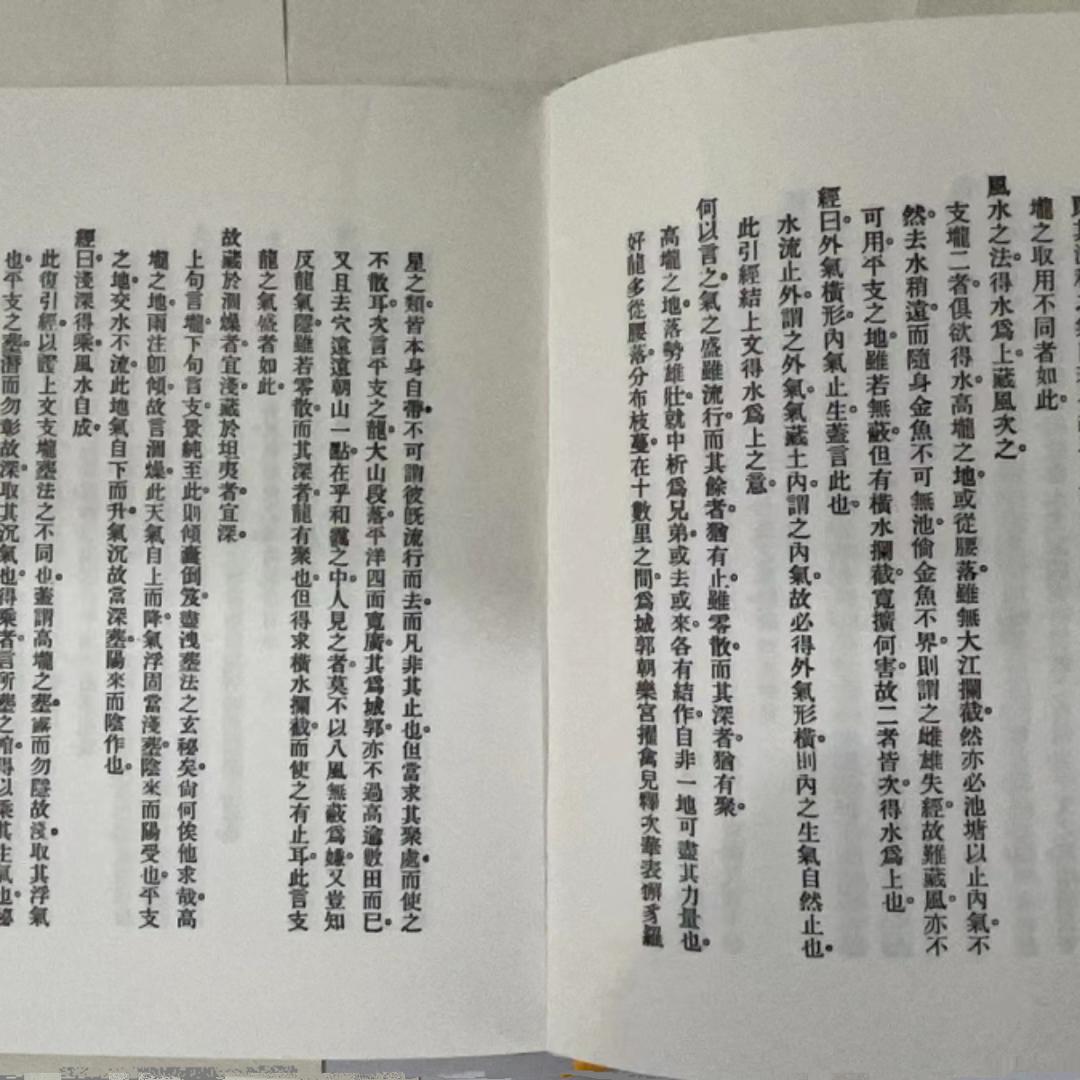 壠之取用不同者如此。
風水之法。得水爲上。藏風次之。
支壠二者。俱欲得水。高壠之地。或從腰落。雖無大江攔截。然亦必池塘以止內氣。不
然。去水稍遠。而隨身金魚不可無池。倘金魚不界。則謂之雌雄失經。故雖藏風。亦不
可用。平支之地。雖若無蔽。但有橫水攔截。寬擴何害。故二者皆次。得水爲上也。
經曰。外氣橫形。內氣止生。蓋言此也。
水流止外。謂之外氣。氣藏土內。謂之內氣。故必得外氣形橫。則內之生氣自然止也。
此引經結上文得水爲上之意。
何以言之。氣之盛雖流行。而其餘者猶有止。雖零散。而其深者猶有聚。
高壠之地。落勢雄壯。就中析爲兄弟。或去或來。各有結作。自非一地可盡其力量也。
好龍多從腰落。分布枝蔓。在十數里之間。爲城郭朝樂宮擢禽兒釋次華表懈豸羅
星之類。皆本身自帶。不可謂彼旣流行而去。而凡非其止也。但當求其聚處而使之
不散耳。次言平支之龍。大山段落。平洋四面寬廣。其爲城郭。亦不過高逾數田而已。
又且去穴遠。遠朝山一點。在乎和靄之中。人見之者。莫不以八風無蔽爲嫌。又豈知
反龍氣隱。雖若零散。而其深者。龍有聚也。但得求橫水攔截。而使之有止耳。此言支
龍之氣盛者如此。
故藏於涸燥者宜淺。藏於坦夷者宜深。
上句言壠。下句言支。景純至此。則傾囊倒笈。盡洩塟法之玄秘矣。尙何俟他求哉。高
壠之地。雨注卽傾。故言涸燥。此天氣自上而降。氣浮固當淺塟。陰來而陽受也。平支
之地。交水不流。此地氣自下而升。氣沉故當深塟。陽來而陰作也。
經曰。淺深得乘。風水自成。
此復引經。以證上文支壠塟法之不同也。蓋謂高壠之塟。露而勿隱。故淺。取其浮氣
也。平支之塟。潛而勿彰。故深。取其沉氣也。得乘者。言所塟之